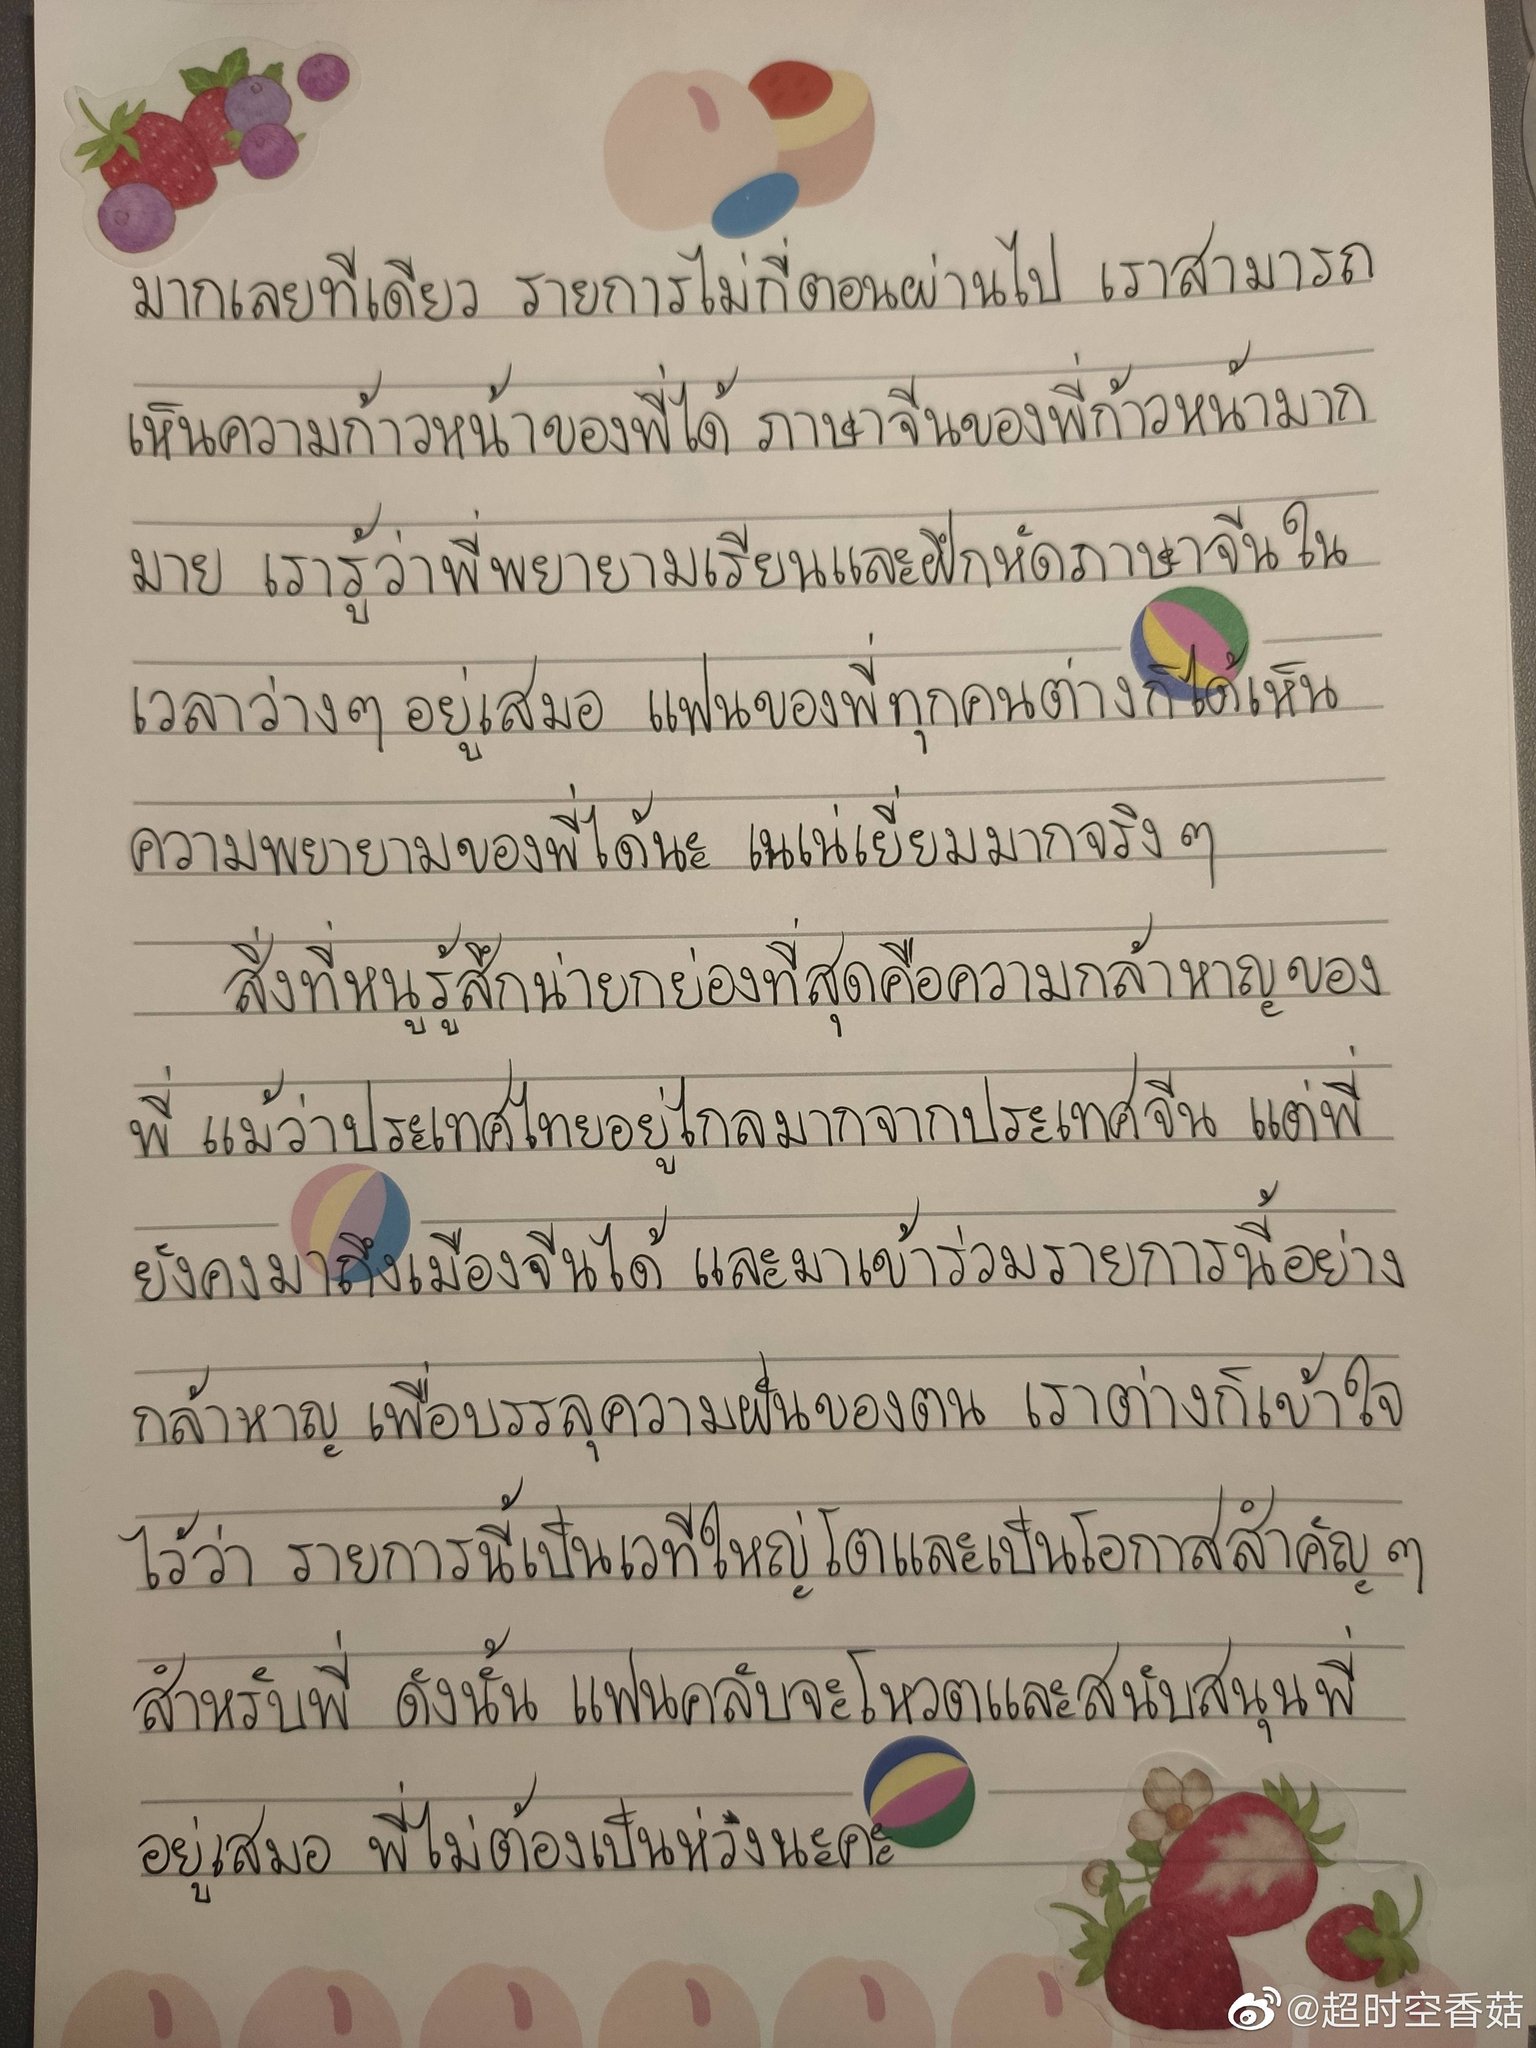 มากเลยทีเดียว รายการไม่กี่ตอนผ่านไป เราสามารถ
เห็นความก้าวหน้าของพี่ได้ ภาษาจีนของพี่ก้าวหน้ามาก
มาย เรารู้ว่าพี่พยายามเรียนและฝึกหัดภาษาจีนใน
เวลาว่างๆ อยู่เสมอ แฟนของพี่ทุกคนต่างก็ได้เห็น
ความพยายามของพี่ได้นะ เนเน่เยี่ยมมากจริง ๆ
สิ่งที่หนูรู้สึกน่ายกย่องที่สุดคือความกล้าหาญของ
พี่ แม้ว่าประเทศไทยอยู่ไกลมากจากประเทศจีน แต่พี่
ยังคงมาถึงเมืองจีนได้ และมาเข้าร่วมรายการนี้อย่าง
กล้าหาญ เพื่อบรรลุความฝันของตน เราต่างก็เข้าใจ
ไว้ว่า รายการนี้เป็นเวทีใหญ่โตและเป็นโอกาสสำคัญ ๆ
สำหรับพี่ ดังนั้น แฟนคลับจะโหวตและสนับสนุนพี่
อยู่เสมอ พี่ไม่ต้องเป็นห่วงนะคะ
@超时空香菇